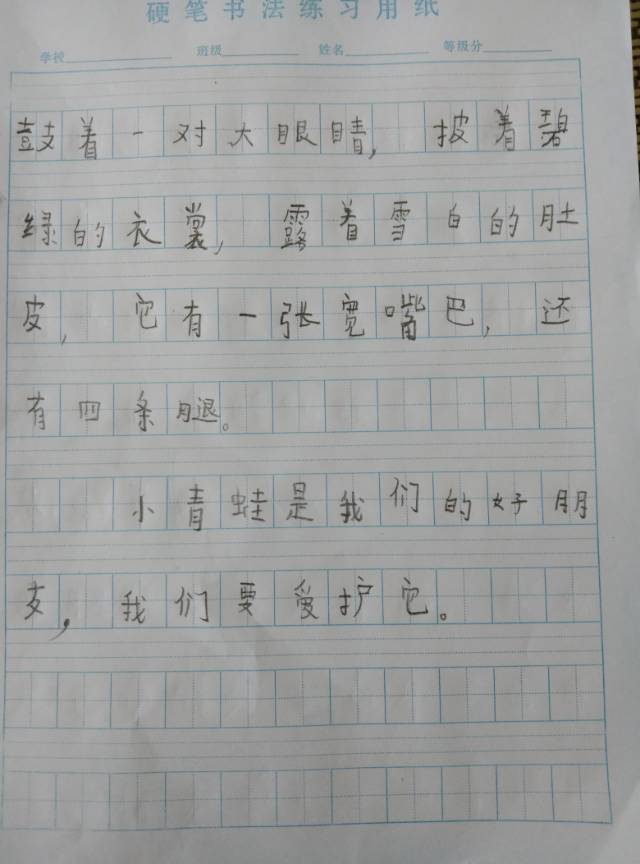 硬笔书法练习用纸
学校 班级 姓名 等级分
鼓着一对大眼睛,披着碧
绿的衣裳,露着雪白的肚
皮,它有一张宽嘴巴,还
有四条腿。
小青蛙是我们的好朋
友,我们要爱护它。